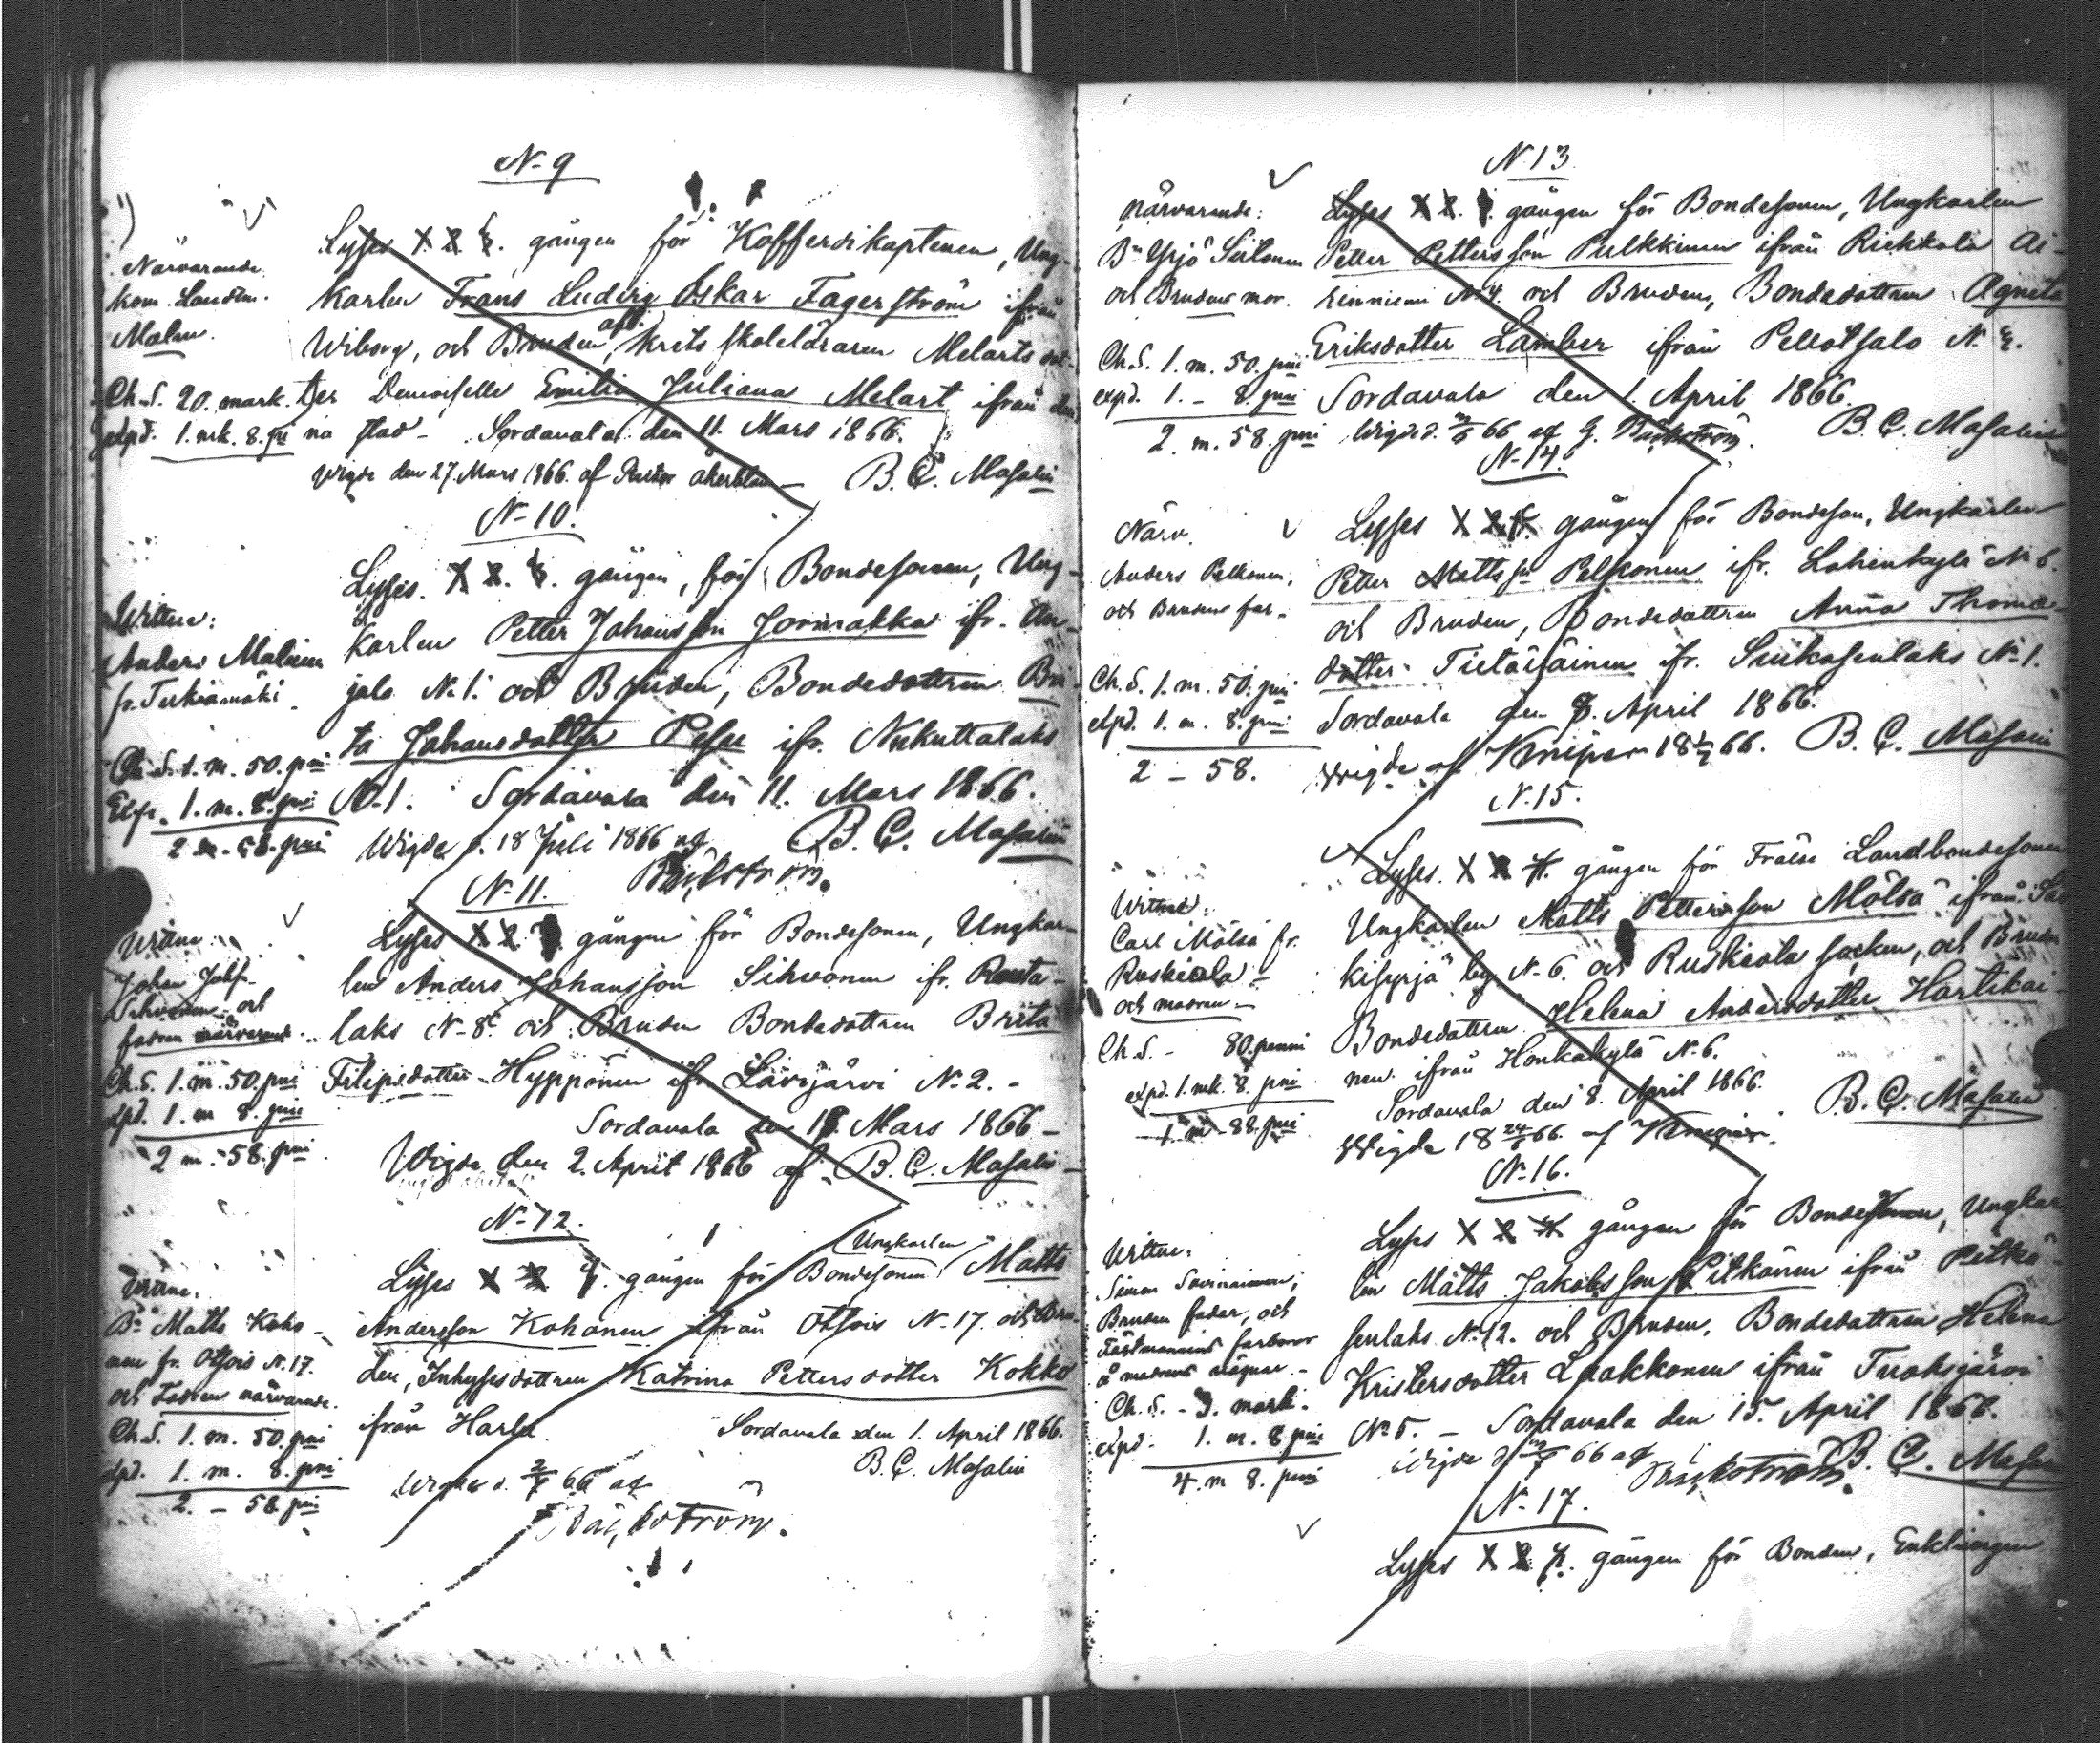 N. 9
Närvarande
kom. Landtm.
Malm.
Ch. S. 20. mark.
exp. 1. mk. 8. pi
Lyses X 2 3. gången för Kofferdikaptenen, Ung-
karlen Frans Ludvig Oskar Fagerström ifrån
Wiborg, och Bruden, afl. krets skoleläraren Melarts dot-
ter Demoiselle Emilia Juliana Melart ifrån den-
na stad - Sordavala den 11. Mars 1866.
Wigde den 27. Mars 1866. af Pastor Åkerblom B. C. Masalin
N. 10.
Wittne:
Anders Malinen
fr. Tuhkamäki
Ch. S. 1. m. 50. pni
Exp. 1. m. 8. pni
2 m. 58. pni
Lyses. X 2. 3. gången, för Bondesonen, Ung-
karlen Petter Johansson Jormakka ifr. An-
jala N. 1. och Bruden, Bondedottren Bri-
ta Johansdotter Pesse ifr. Nukuttalaks
N. 1. Sordavala den 11. Mars 1866.
Wigde d. 18 Juli 1866 af B. C. Masalin
Bäckström.
N. 11.
Wittne
Johan Johs.
Sihvonen och
fadren närvarande
Ch. S. 1. m. 50. pni
exp. 1. m 8. pni
2 m. 58. pni
Lyses X 2 gången för Bondesonen, Ungkar-
len Anders Johansson Sihvonen ifr. Rauta-
laks N. 8. och Bruden Bondedottren Brita
Filipsdotter Hyppönen ifr. Lävijärvi N. 2. -
Sordavala den 18. Mars 1866 -
Wigde den 2. April 1866 af B. C. Masalin
N. 12.
Wittne.
Bn Matts Koho-
nen fr. Otsois N. 17.
och Fadren närvarande.
Ch. S. 1. m. 50. pni
exp. 1. m. 8. pni
2. - 58 pni
Lyses X 2 3. gången för Bondesonen Ungkarlen Matts
Andersson Kohonen ifrån Otsois N. 17. och Bru-
den, Inhysesdottren Katrina Pettersdotter Kokko
ifrån Harlu. Sordavala den 1. April 1866.
B. C. Masalin
Wigde d. 66 af
Bäckström.
N. 13
Närvarande:
Bn Yrjö Siitonen
och Brudens mor.
Ch. S. 1. m. 50. pni
exp. 1. - 8. pni
2. m. 58. pni
Lyses X 2. gången för Bondesonen, Ungkarlen
Petter Pettersson Pulkkinen ifrån Riekkala
N. 4. och Bruden, Bondedottren Agneta
Eriksdotter Lamber ifrån Pellotsalo N. 2.
Sordavala den 1. April 1866.
Wigde d. 66 af G. Bäckström. B. C. Masalin
N. 14.
Närv.
Anders Pelkonen,
och Brudens far.
Ch. S. 1. m. 50. pni
exp. 1. m. 8. pni
2 - 58.
Lyses X 2 3. gången för Bondeson, Ungkarlen
Petter Mattsson Pelkonen ifr. Lahenkylä N. 6.
och Bruden, Bondedottren Anna Thomas-
dotter Tietäväinen ifr. Siikasenlaks N. 1.
Sordavala den 8. April 1866.
Wigde af 66. B. C. Masalin
N. 15.
Wittne:
Carl Mölsä fr.
Ruskeala -
och modren -
Ch. S. - 80. penni
exp. 1. mk. 8. pni
1 m - 88. pni
Lyses. X 2 3. gången för Frälse Landbondesonen
Ungkarlen Matts Pettersson Mölsä ifrån Sär-
kisyrjä by N. 6. och Ruskeala socken, och Bruden
Bondedottren Helena Andersdotter Hartikai-
nen ifrån Honkakylä N. 6.
Sordavala den 8. April 1866.
B. C. Masalin
Wigde 18 66. af
N. 16.
Wittne:
Simon Savinainen,
Brudens fader, och
Fästmannens farbror
Ch. S. - 3. mark.
exp. 1. m. 8 pni
4. m 8. pni
Lyses X 2 3. gången för Bondesonen, Ungkar-
len Matts Jakobsson Pitkänen ifrån Pitkä-
senlaks N. 12. och Bruden, Bondedottren Helena
Kristersdotter Laakkonen ifrån Tuoksjärvi
N. 5. - Sordavala den 15. April 1866.
Wigde d. 66 af Bäckström. B. C. Masalin
N. 17.
Lyses X 2 3. gången för Bonden, Enklingen